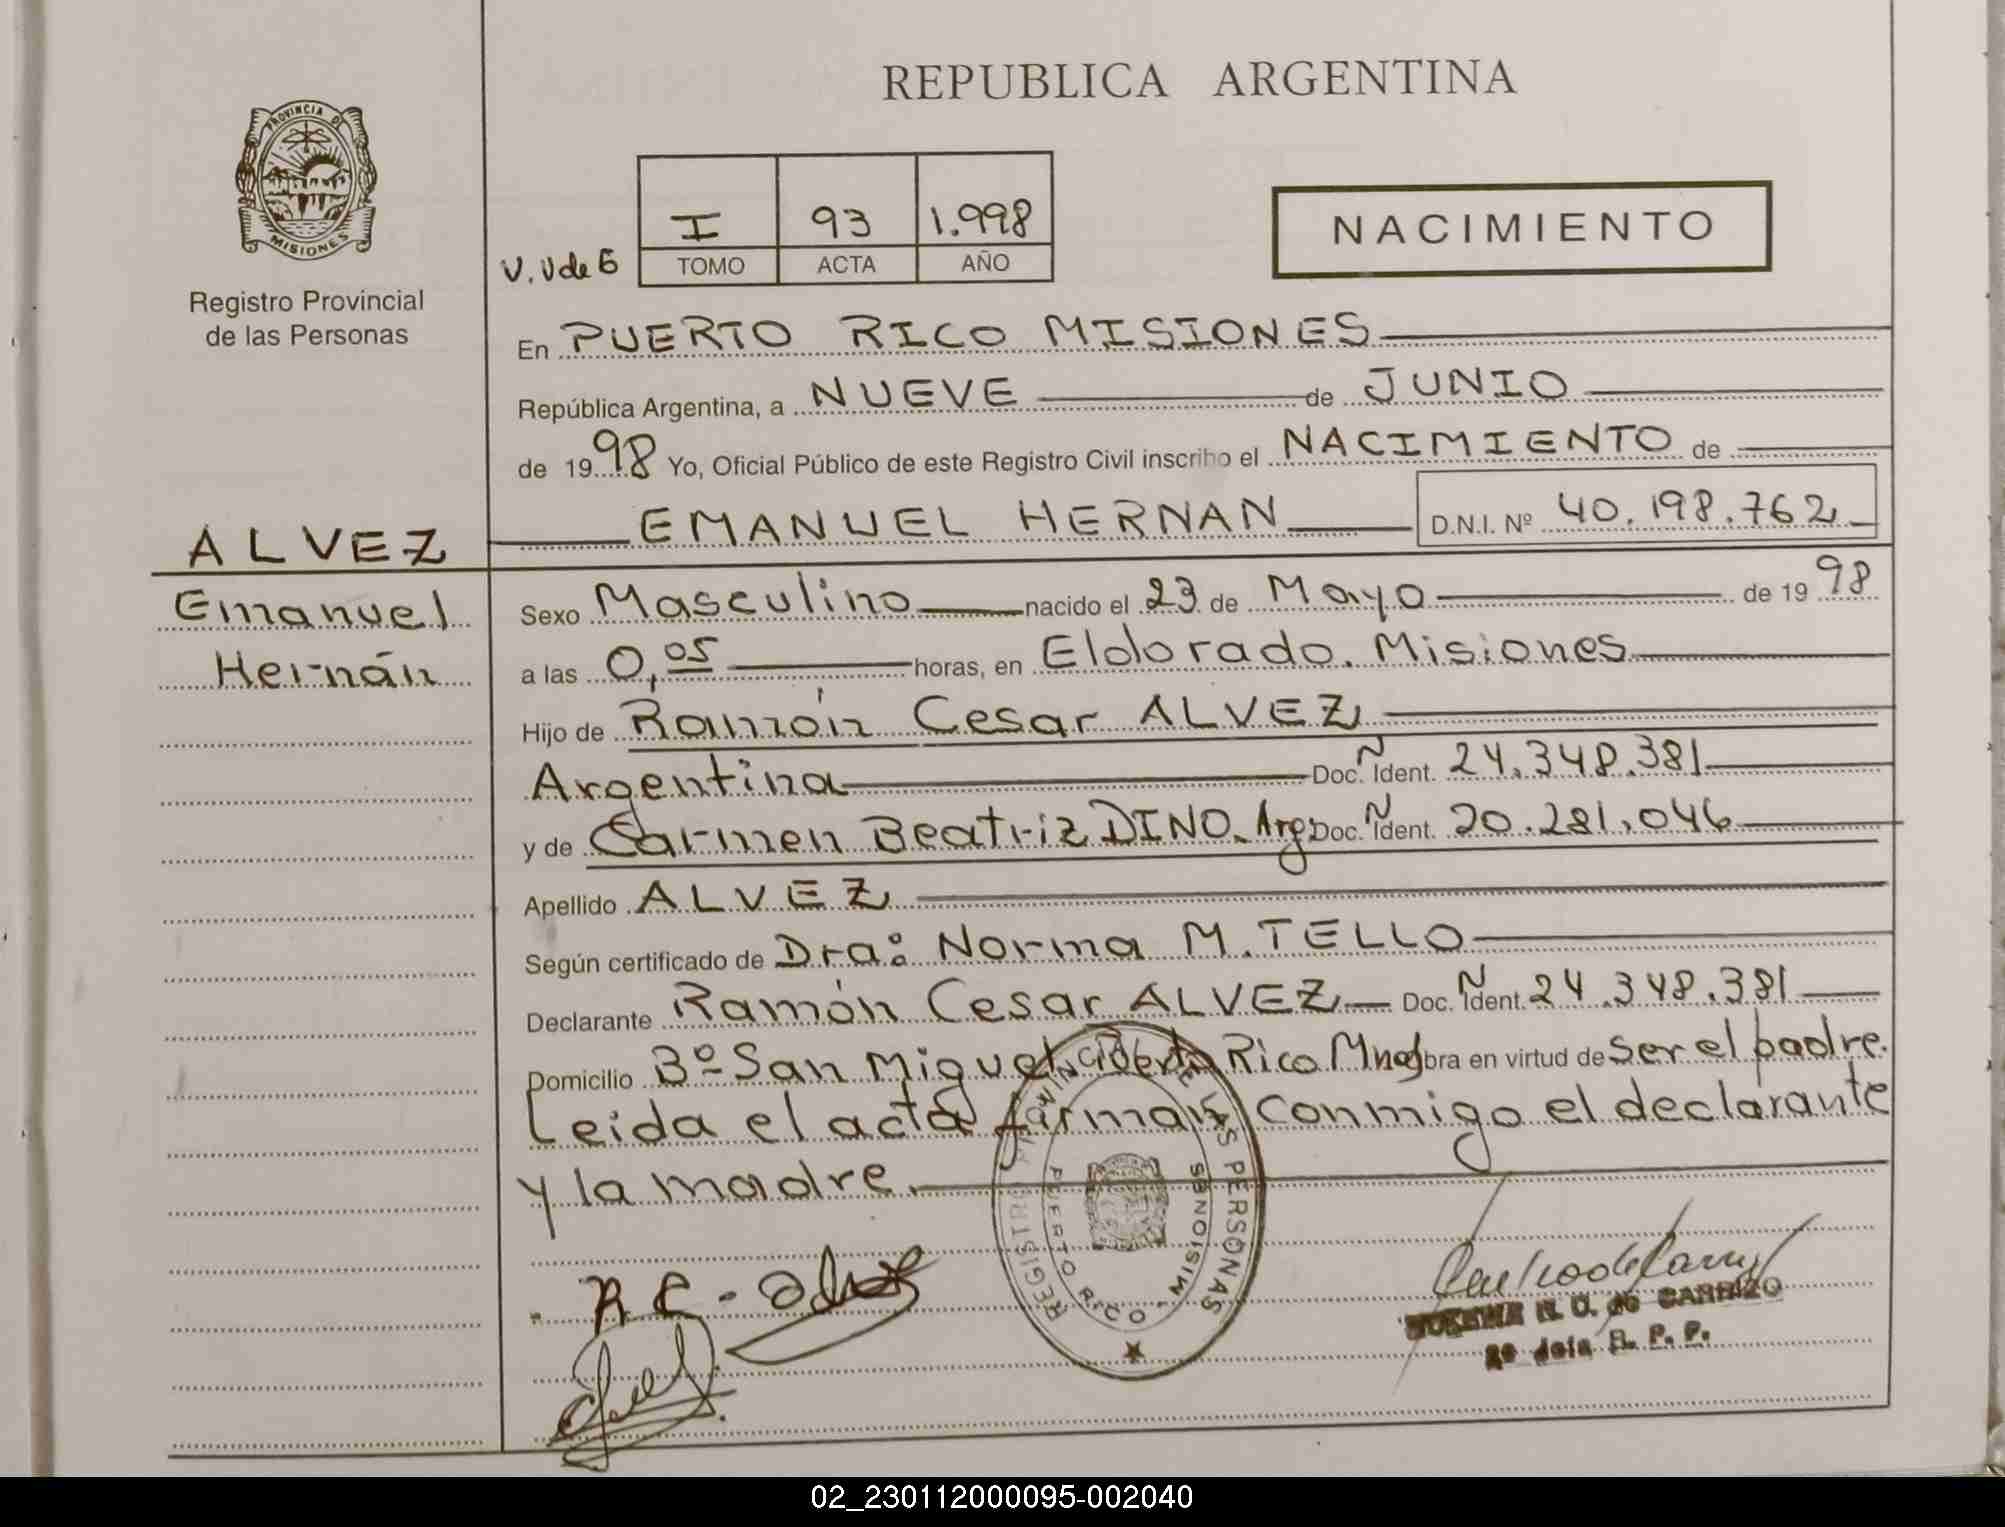 REPUBLICA ARGENTINA
PROVINCIA DE
MISIONES
Registro Provincial
de las Personas
I 93 1.998
V.V de 6 TOMO ACTA AÑO
NACIMIENTO
En PUERTO RICO MISIONES
República Argentina, a NUEVE de JUNIO
de 1998 Yo, Oficial Público de este Registro Civil inscribo el NACIMIENTO de
EMANUEL HERNAN D.N.I. Nº 40.198.762
ALVEZ
Emanuel
Hernán
Sexo Masculino nacido el 23 de Mayo de 1998
a las 0,05 horas, en Eldorado. Misiones
Hijo de Ramón Cesar ALVEZ
Argentina Doc. Ñ Ident. 24.348.381
y de Carmen Beatriz DINO. Arg. Doc. Ñ Ident. 20.281.046
Apellido ALVEZ
Según certificado de Dra: Norma M. TELLO
Declarante Ramón Cesar ALVEZ Doc. Ñ Ident. 24.348.381
Domicilio Bº San Miguel. Puerto Rico Mnes obra en virtud de ser el padre.
Leida el acta firman conmigo el declarante
y la madre.
REGISTRO PROVINCIAL DE LAS PERSONAS
PUERTO RICO - MISIONES
R C - Alvez
N. O. de CARRIZO
2º Jefa R. P. P.
02_230112000095-002040